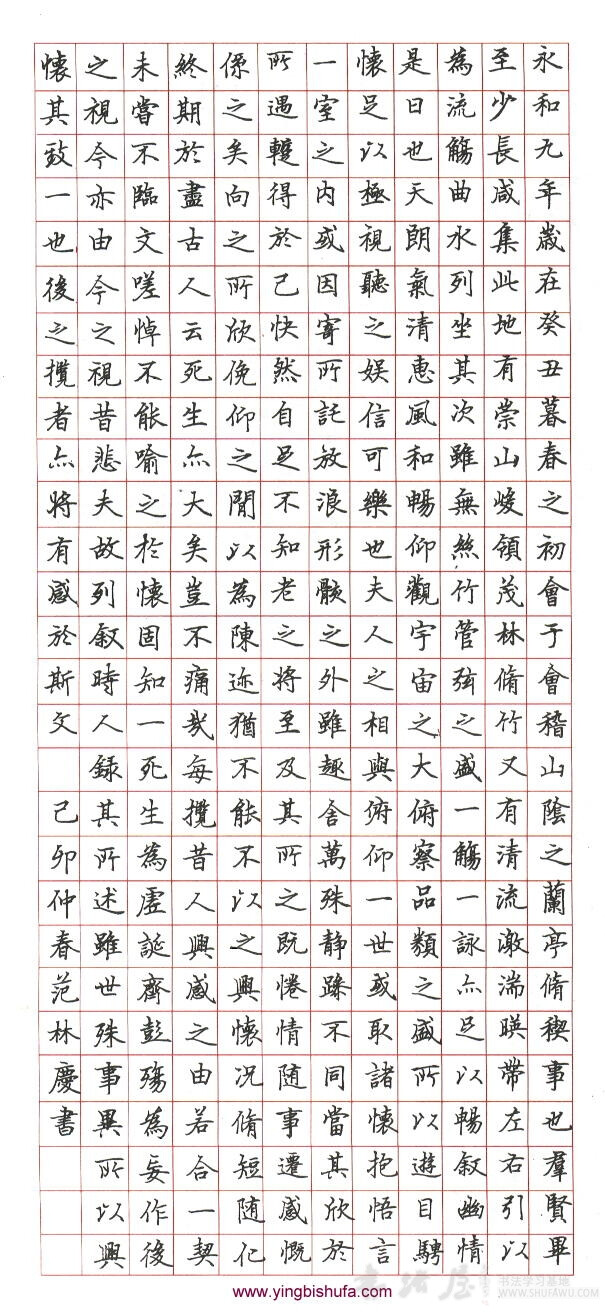 永和九年歲在癸丑暮春之初會于會稽山陰之蘭亭脩稧事也羣賢畢
至少長咸集此地有崇山峻領茂林脩竹又有清流激湍暎帶左右引以
為流觴曲水列坐其次雖無絲竹管弦之盛一觴一詠亦足以暢叙幽情
是日也天朗氣清惠風和暢仰觀宇宙之大俯察品類之盛所以遊目騁
懷足以極視聽之娛信可樂也夫人之相與俯仰一世或取諸懷抱悟言
一室之内或因寄所託放浪形骸之外雖趣舍萬殊静躁不同當其欣於
所遇蹔得於己快然自足不知老之將至及其所之既惓情随事遷感慨
係之矣向之所欣俛仰之閒以為陳迹猶不能不以之興懷況脩短随化
終期於盡古人云死生亦大矣豈不痛哉每攬昔人興感之由若合一契
未嘗不臨文嗟悼不能喻之於懷固知一死生為虛誕齊彭殤為妄作後
之視今亦由今之視昔悲夫故列叙時人録其所述雖世殊事異所以興
懷其致一也後之攬者亦將有感於斯文 己卯仲春范林慶書
书法屋 书法学习基地
WWW.SHUFAWU.COM
www.yingbishufa.com